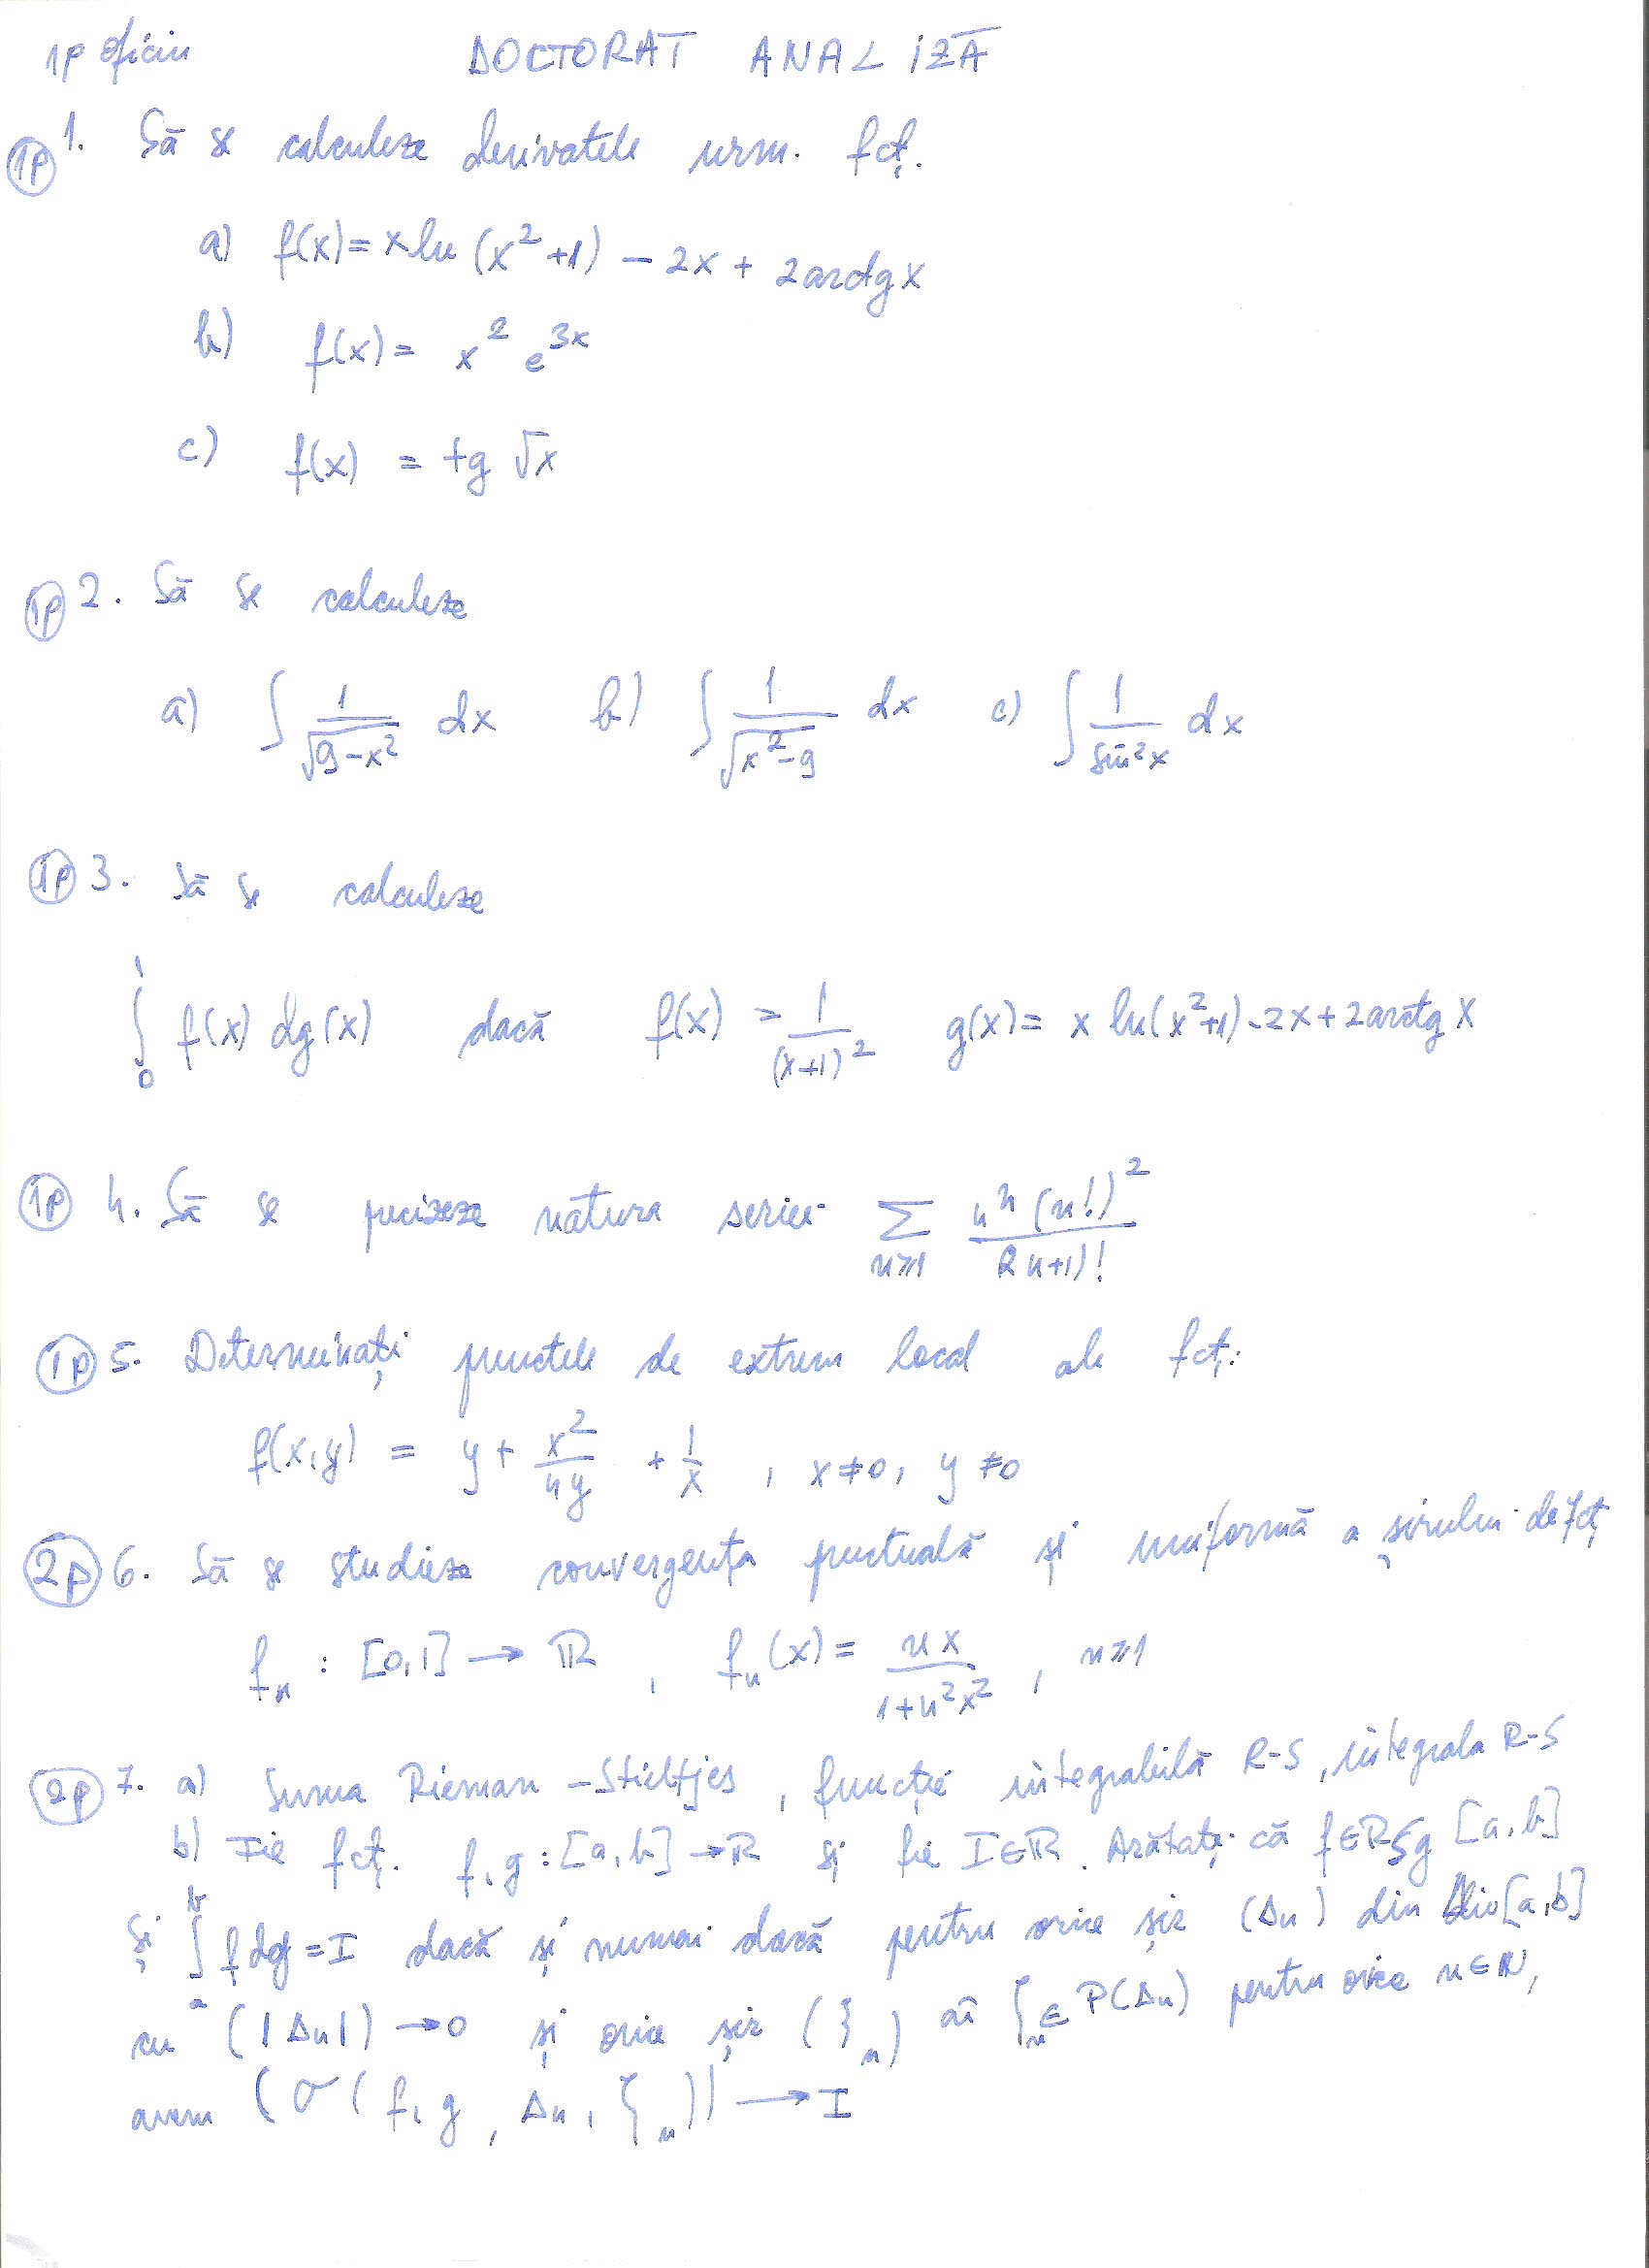 1p oficiu DOCTORAT ANALIZĂ
1p 1. Să se calculeze derivatele urm. fcț.
a) f(x) = x ln (x² + 1) - 2x + 2 arctg x
b) f(x) = x² e^{3x}
c) f(x) = tg √x
1p 2. Să se calculeze
a) ∫ 1/√(9-x²) dx b) ∫ 1/√(x²-9) dx c) ∫ 1/sin²x dx
1p 3. Să se calculeze
∫₀¹ f(x) dg(x) dacă f(x) = 1/(x+1)² g(x) = x ln(x²+1) - 2x + 2 arctg x
1p 4. Să se precizeze natura seriei ∑_{n≥1} n^n (n!)²/(2n+1)!
1p 5. Determinați punctele de extrem local ale fcț:
f(x,y) = y + x²/4y + 1/x , x≠0, y≠0
2p 6. Să se studieze convergența punctuală și uniformă a șirului de fcț
f_n : [0,1] → ℝ , f_n(x) = nx/(1+n²x²) , n≥1
2p 7. a) Suma Rieman-Stieltjes, funcție integrabilă R-S, integrala R-S
b) Fie fcț. f, g : [a,b] → ℝ și fie I∈ℝ. Arătați că f∈RS_g [a,b]
și ∫_a^b f dg = I dacă și numai dacă pentru orice șir (Δn) din Div[a,b]
cu (|Δn|) → 0 și orice șir (ξ_n) aî ξ_n ∈ P(Δn) pentru orice n∈ℕ,
avem (σ(f, g, Δn, ξ_n)) → I